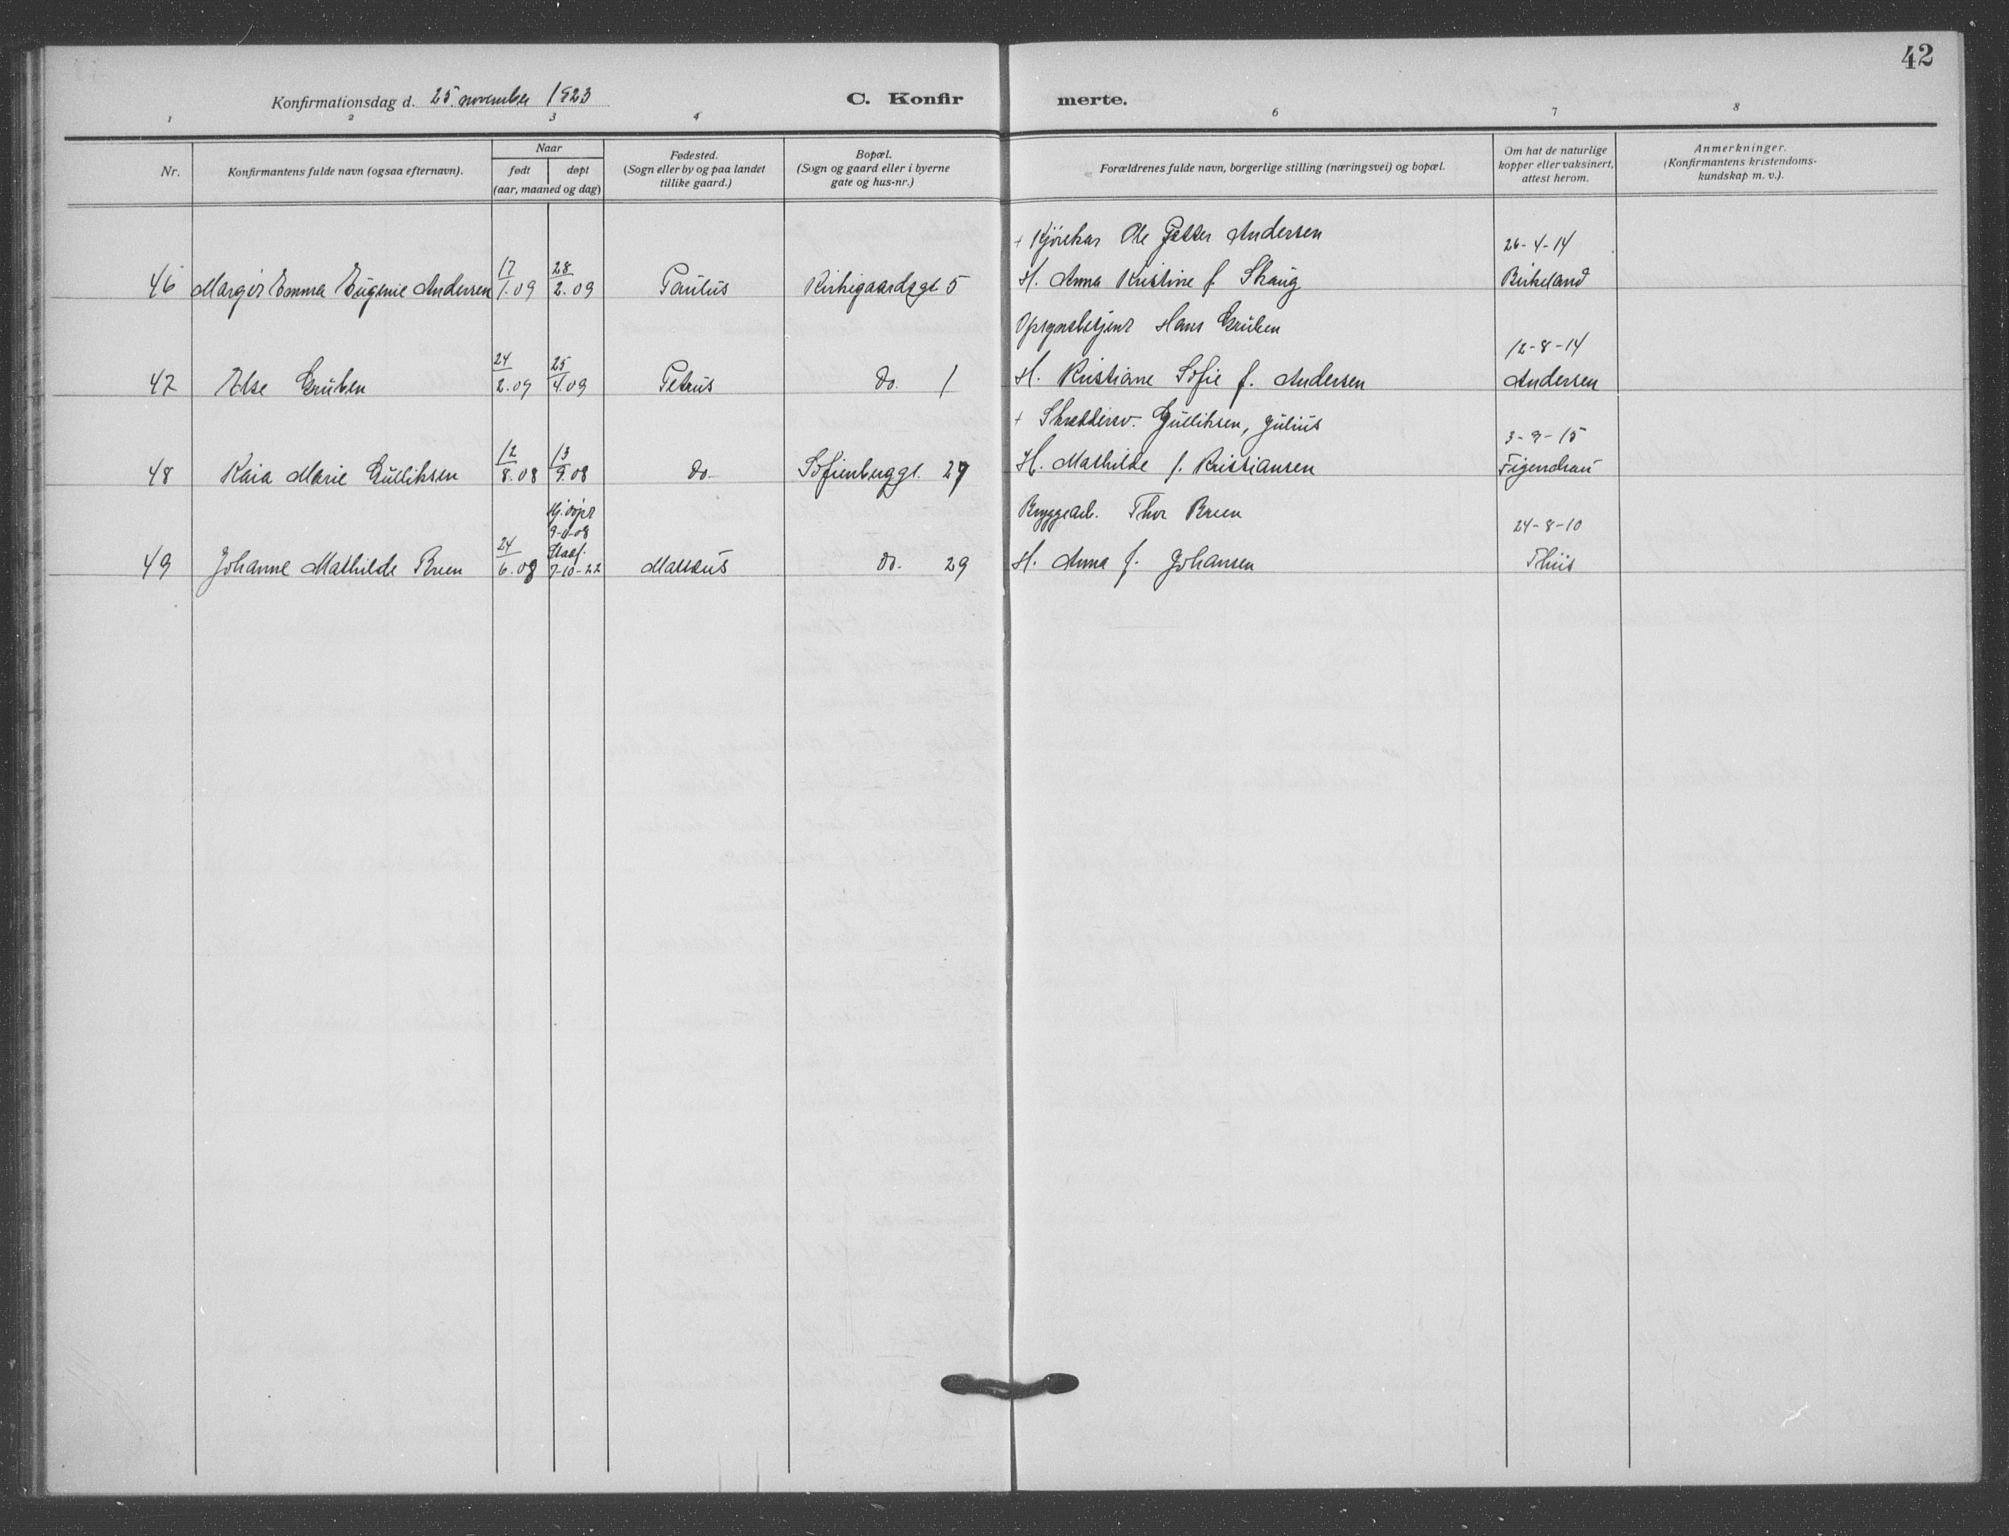 42
Konfirmationsdag d. 25 november 1923
C. Konfir merte.
1 2 3 4 6 7 8
Nr.
Konfirmantens fulde navn (ogsaa efternavn).
Naar
født
døpt
(aar, maaned og dag)
Fødested.
(Sogn eller by og paa landet
tillike gaard.)
Bopæl.
(Sogn og gaard eller i byerne
gate og hus-nr.)
Forældrenes fulde navn, borgerlige stilling (næringsvei) og bopæl.
Om hat de naturlige
kopper eller vaksinert,
attest herom.
Anmerkninger.
(Konfirmantens kristendoms-
kundskap m. v.).
+ Kjørekar Ole Petter Andersen 26-4-14
46 Margit Emma Eugenie Andersen 17/1.09 28/2.09 Paulus Kirkegaardsgt 5 H. Anna Kristine f. Skaug Birkeland
Opsynsbetjent Hans Gruben 12-8-14
47 Else Gruben 24/2.09 25/4.09 Petrus do. 1 H. Kristiane Sofie f. Andersen Andersen
+ Skræddersv. Gulliksen, Julius 3-9-15
48 Kaia Marie Gulliksen 12/8.08 13/9.08 do. Sofienberggt. 27 H. Mathilde f. Kristiansen Figenchau
Hj. døpt
9-11-08
Stadf.
Bryggearb. Thor Breen 24-8-10
49 Johanne Mathilde Breen 24/6.08 7-10-22 Mattæus do. 29 H. Anna f. Johansen Thiis